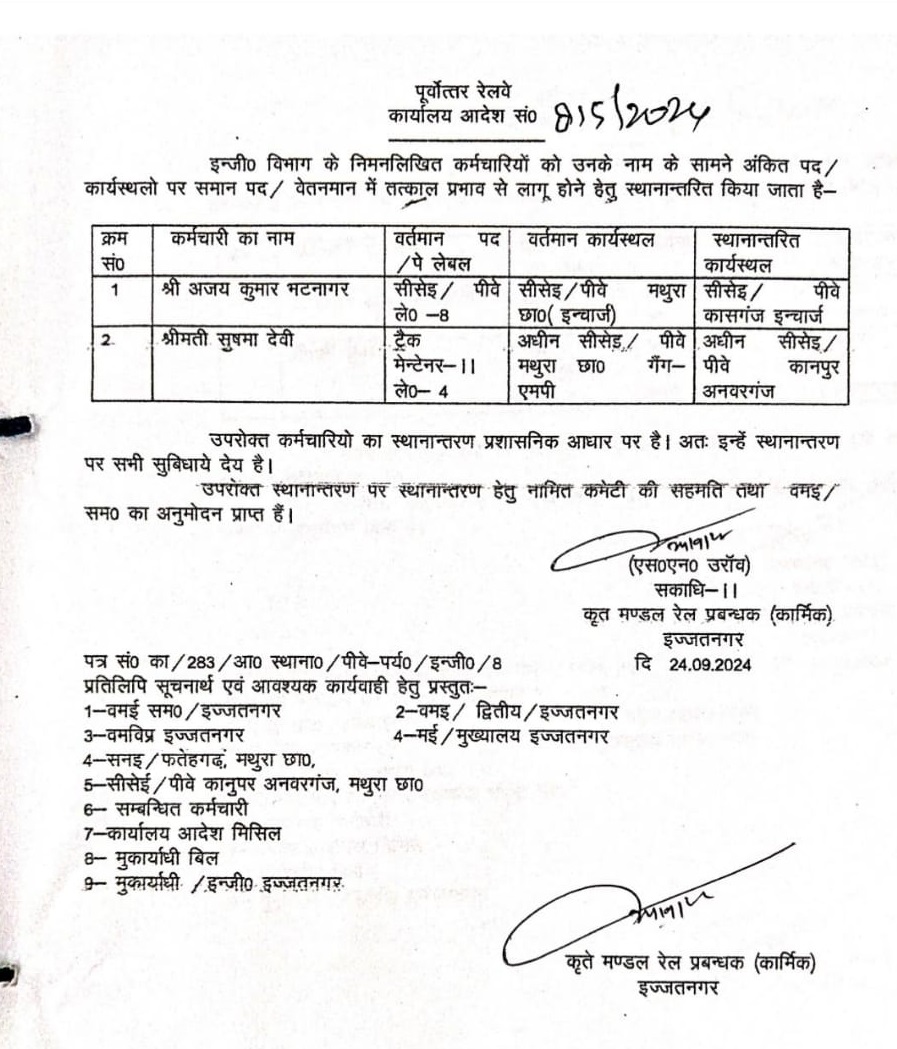 पूर्वोत्तर रेलवे
कार्यालय आदेश सं0 815/2024
इन्जी0 विभाग के निमनलिखित कर्मचारियों को उनके नाम के सामने अंकित पद/
कार्यस्थलो पर समान पद/ वेतनमान में तत्काल प्रभाव से लागू होने हेतु स्थानान्तरित किया जाता है–
क्रम सं0 | कर्मचारी का नाम | वर्तमान पद /पे लेबल | वर्तमान कार्यस्थल | स्थानान्तरित कार्यस्थल
1 | श्री अजय कुमार भटनागर | सीसेइ/ पीवे ले0 –8 | सीसेइ/पीवे मथुरा छा0( इन्चार्ज) | सीसेइ/ पीवे कासगंज इन्चार्ज
2. | श्रीमती सुषमा देवी | ट्रैक मेन्टेनर–II ले0– 4 | अधीन सीसेइ/ पीवे मथुरा छा0 गैंग–एमपी | अधीन सीसेइ/ पीवे कानपुर अनवरगंज
उपरोक्त कर्मचारियो का स्थानान्तरण प्रशासनिक आधार पर है। अतः इन्हें स्थानान्तरण
पर सभी सुबिधाये देय है।
उपरोक्त स्थानान्तरण पर स्थानान्तरण हेतु नामित कमेटी की सहमति तथा वमइ/
सम0 का अनुमोदन प्राप्त हैं।
(एस0एन0 उरॉव)
सकाधि–II
कृत मण्डल रेल प्रबन्धक (कार्मिक)
इज्जतनगर
पत्र सं0 का/283/आ0 स्थाना0/पीवे–पर्य0/इन्जी0/8 दि 24.09.2024
प्रतिलिपि सूचनार्थ एवं आवश्यक कार्यवाही हेतु प्रस्तुतः–
1–वमई सम0/इज्जतनगर 2–वमइ/ द्वितीय/इज्जतनगर
3–वमविप्र इज्जतनगर 4–मई/मुख्यालय इज्जतनगर
4–सनइ/फतेहगढ, मथुरा छा0,
5–सीसेई/पीवे कानुपर अनवरगंज, मथुरा छा0
6– सम्बन्धित कर्मचारी
7–कार्यालय आदेश मिसिल
8– मुकार्याधी बिल
9– मुकार्याधी /इन्जी0 इज्जतनगर
कृते मण्डल रेल प्रबन्धक (कार्मिक)
इज्जतनगर